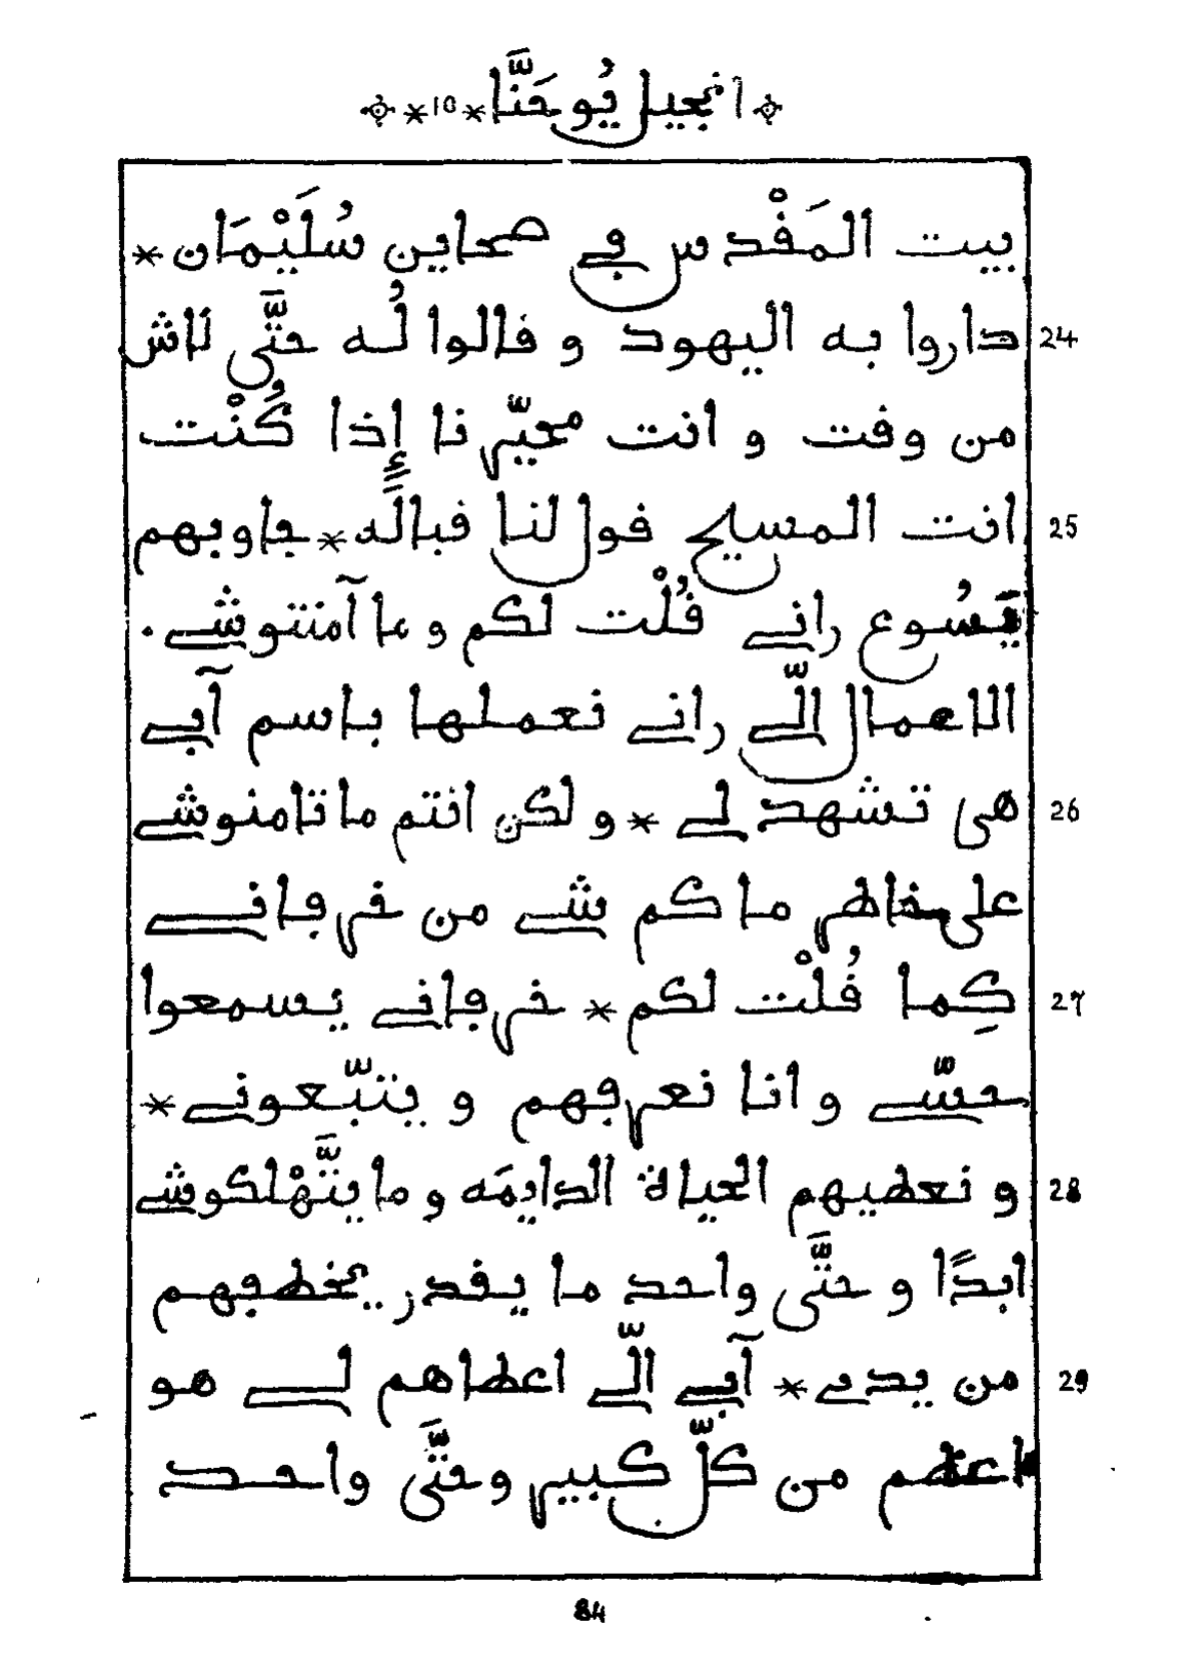 انجيل يُوحَنَّا *10*
بيت المَقْدس في صحاين سُلَيْمَان *
داروا به اليهود و قالوا لُه حتَّى لَاش 24
من وقت و انت محيّرنا إذا كُنْت
انت المسيح قول لنا قبالَه * جاوبهم 25
يَسُوع راني قُلْت لكم و ما آمنتوشي .
الاعمال الّي راني نعملها باسم آبي
هي تشهد لي * و لكن انتم ما تامنوشي 26
على خاطر ما كم شي من خرفاني
كِما قُلْت لكم * خرفاني يسمعوا 27
حسّي و انا نعرفهم و يتبّعوني *
و نعطيهم الحياة الدايمَه و ما يتَّهْلكوشي 28
ابدًا و حتَّى واحد ما يقدر يخطفهم
من يدي * آبي الّي اعطاهم لي هو 29
اعظم من كلّ كبير و حتَّى واحد
84